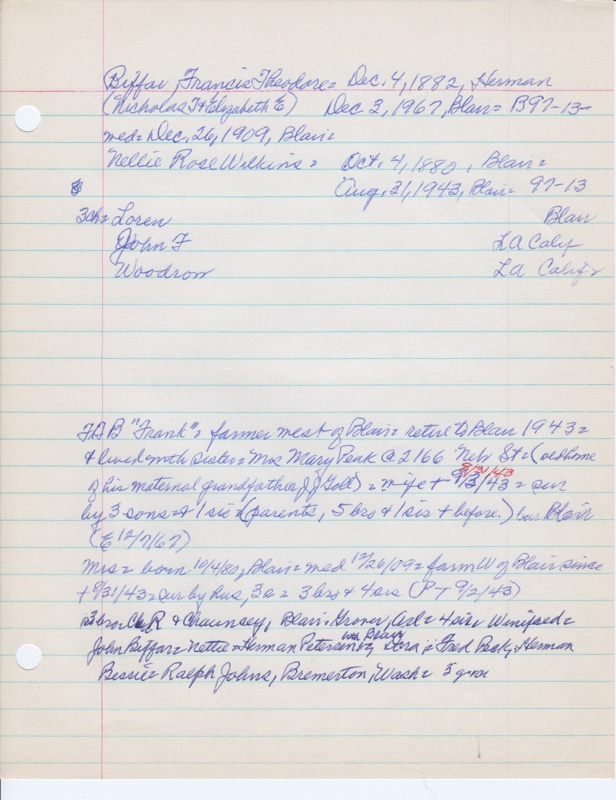 Biffar, Francis Theodore = Dec. 4, 1882, Herman
(Nicholas T + Elizabeth E) Dec 3, 1967, Blair = B97-13-
med = Dec. 26, 1909, Blair =
Nellie Rose Wilkins = Oct. 4, 1880, Blair =
Aug. 31, 1943, Blair = 97-13
3ch = Loren Blair
John F LA Calif
Woodrow LA Calif
F.A B "Frank" = farmer west of Blair = retire to Blair 1943 =
+ lived with sister = Mrs Mary Peak @ 2166 Nebr St = (old home
8/31/43
of his maternal grandfather J J Goll) = wife + 8/13/43 = sur
by 3 sons = + 1 sis = (parents, 5 bros + 1 sis + before.) bur Blair
(E 12/7/67)
Mrs = born 10/4/80, Blair = med 12/26/09 = farm W of Blair since
+ 8/31/43 = sur by hus, 3 s = 3 bros + 4 sis (PT 9/2/43)
3 bros = Ch R + Chaunsey, Blair. Grover, = 4 sis = Winifred =
John Biffar = Nettie = Herman Petersen Dora = Fred Peak, Herman
Bessie = Ralph Johns, Bremerton, Wash =